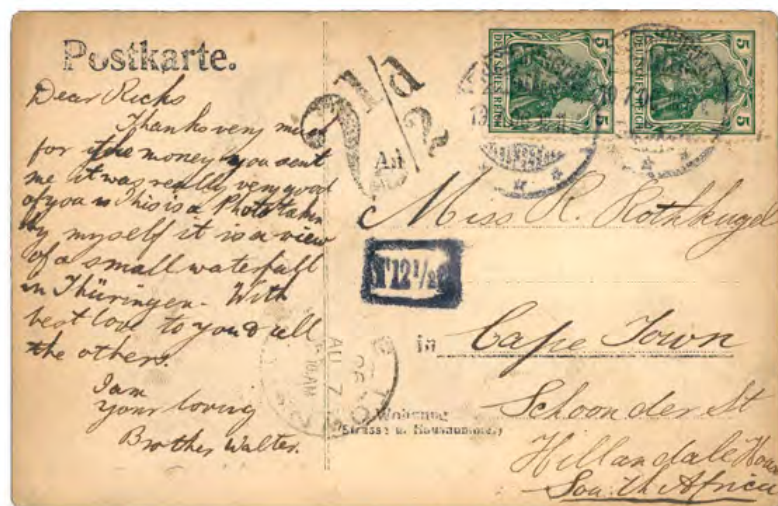 Postkarte.
Dear Richs
Thanks very much
for the money you sent
me it was really very good
of you This is a Photo taken
by myself it is a view
of a small waterfall
in Thüringen. With
best love to you & all
the others.
I am
your loving
Brother Walter.
2 1/2 d
An
T 12 1/2 c
5 DEUTSCHES REICH 5
5 DEUTSCHES REICH 5
Miss R. Rothkugel
in Cape Town
Wohnung
(Strasse u. Hausnummer)
Schoonder St
Hillandale House
South Africa
AU 7
10 AM